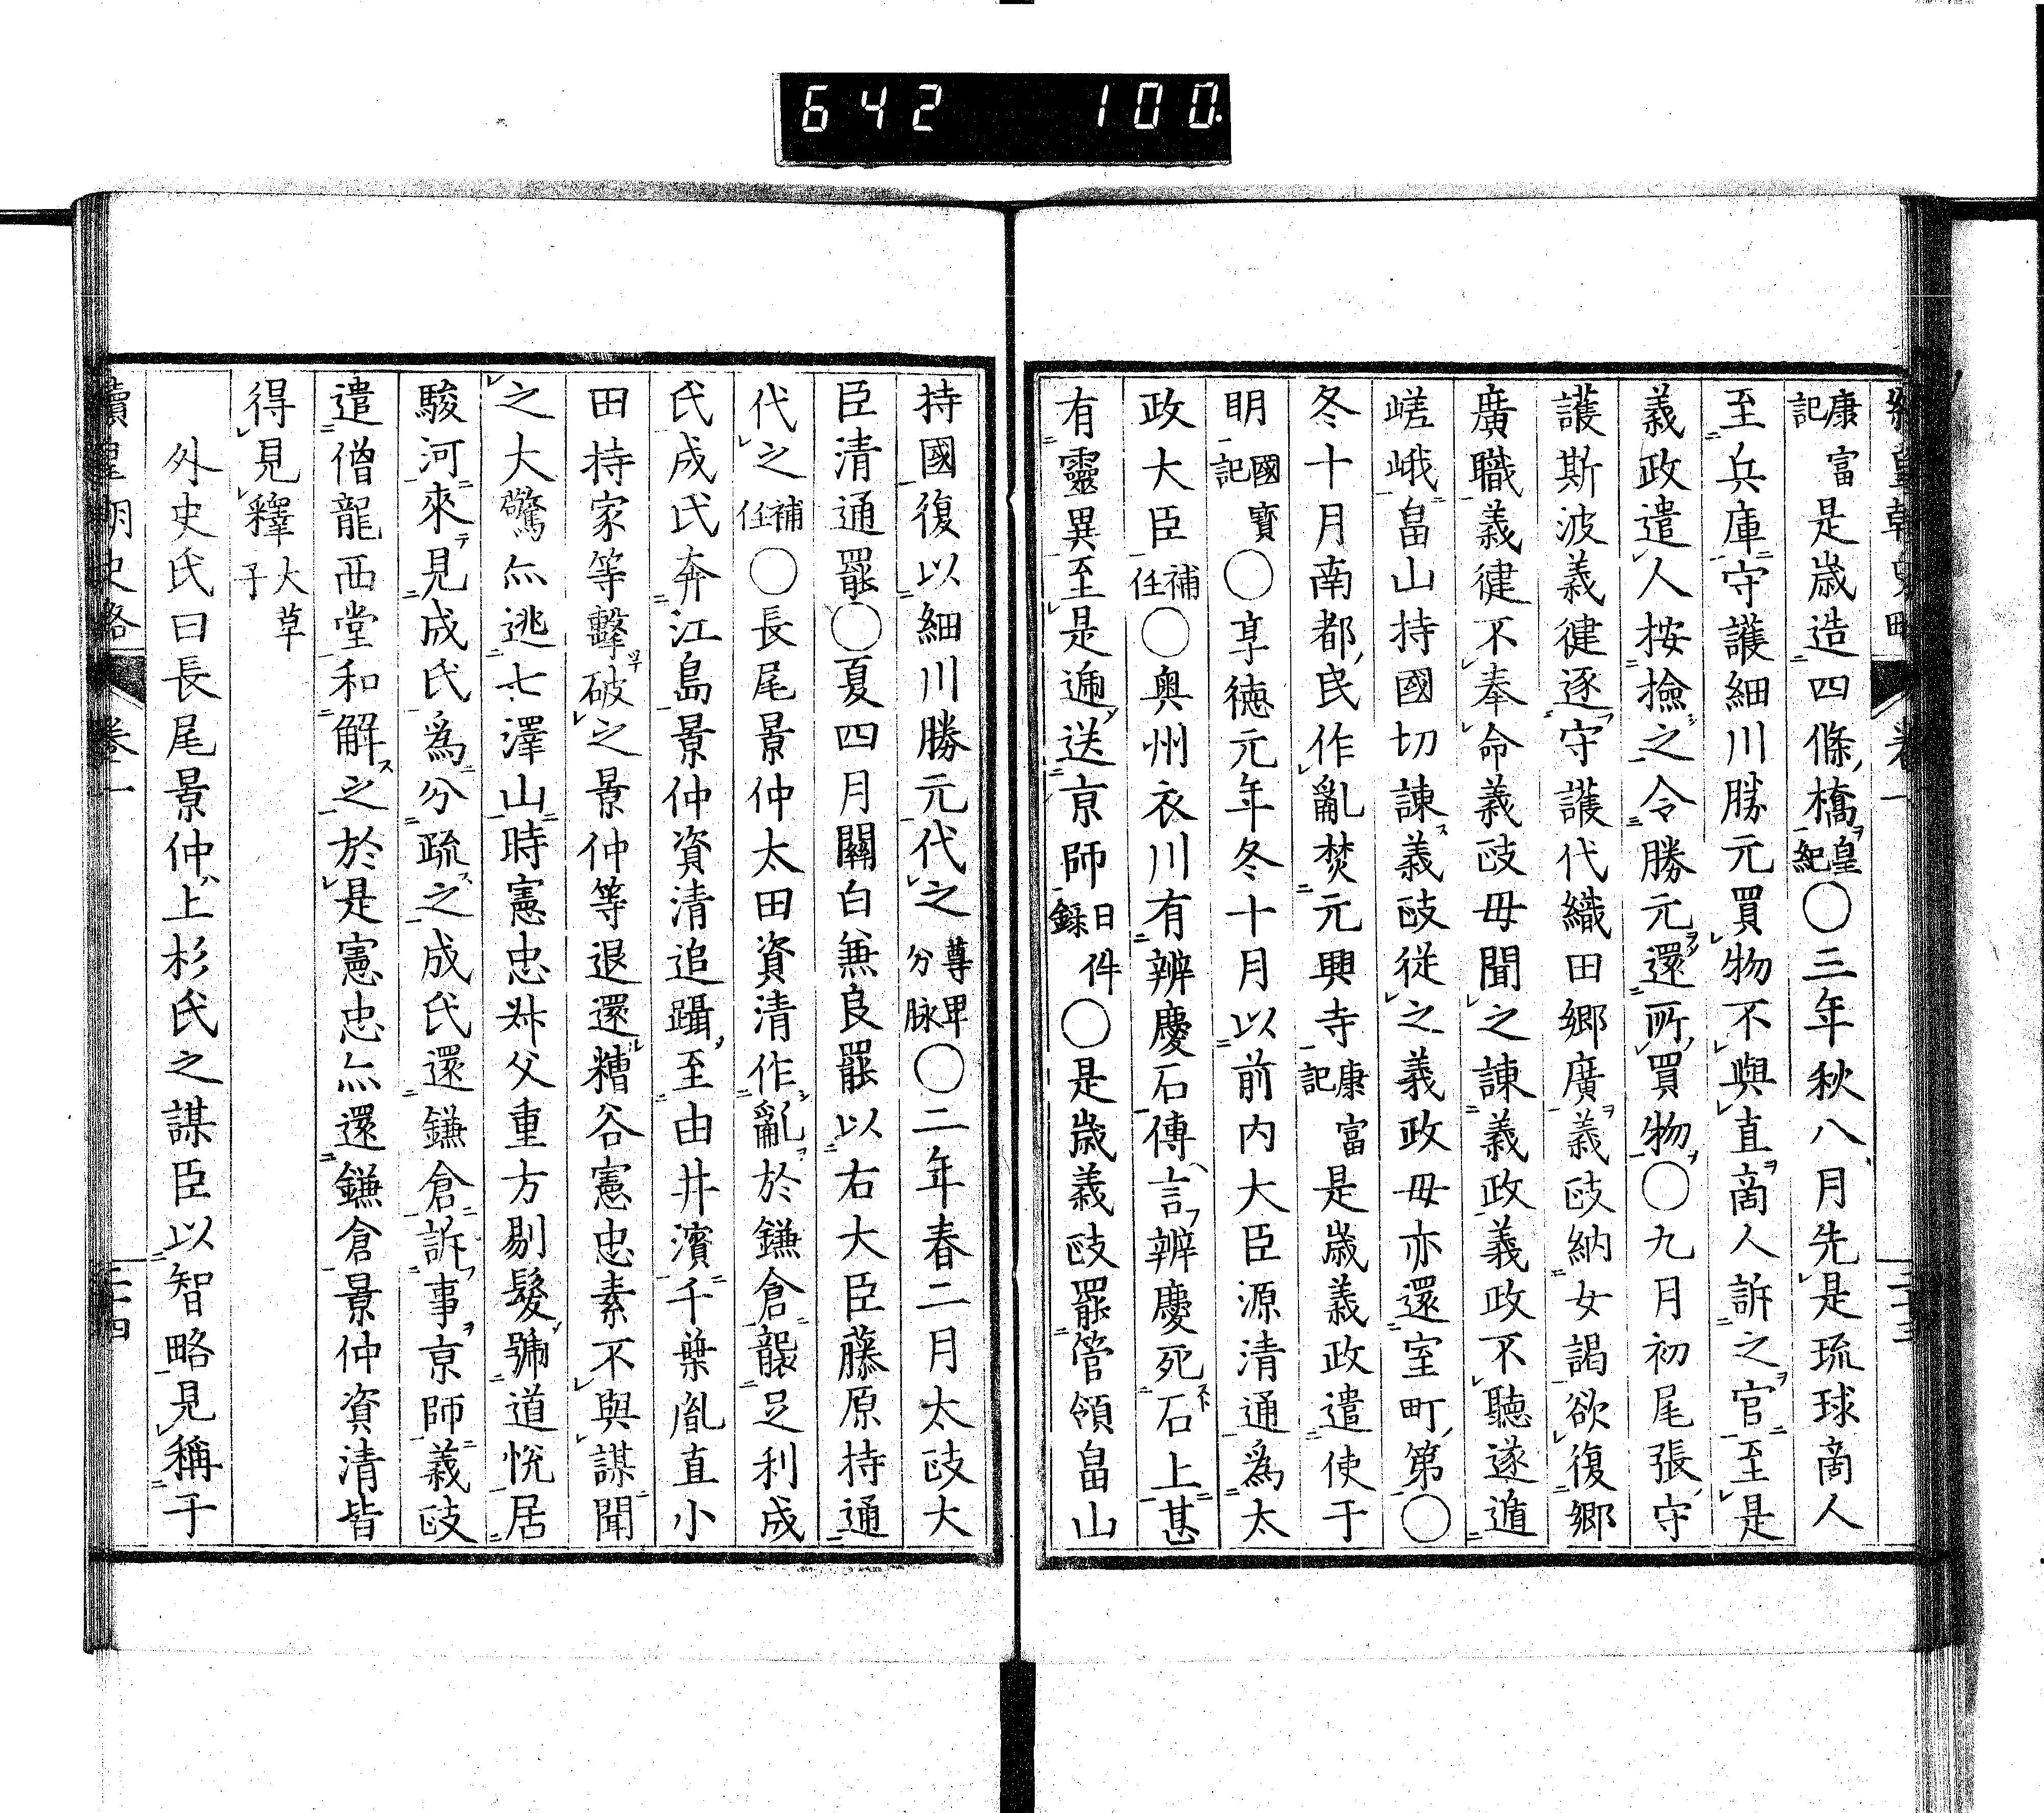 642 100.
康富記是歲造四條橋皇紀〇三年秋八月先是琉球啇人
至兵庫守護細川勝元買物不與直啇人訴之官至是
義政遣人按撿之令勝元還所買物〇九月初尾張守
護斯波義健逐守護代織田郷廣義政納女謁欲復郷
廣職義健不奉命義政毋聞之諫義政義政不聽遂遁
嵯峨畠山持國切諫義政従之義政毋亦還室町第〇
冬十月南都民作亂焚元興寺康富記是歲義政遣使于
明國寶記〇享徳元年冬十月以前内大臣源清通為太
政大臣補任〇奥州衣川有辨慶石傳言辨慶死石上甚
有靈異至是遞送京師日件録〇是歲義政罷管領畠山
持國復以細川勝元代之尊卑分脉〇二年春二月太政大
臣清通罷〇夏四月關白兼良罷以右大臣藤原持通
代之補任〇長尾景仲太田資清作亂於鎌倉襲足利成
氏成氏奔江島景仲資清追躡至由井濱千葉胤直小
田持家等擊破之景仲等退還糟谷憲忠素不與謀聞
之大驚亦逃七澤山時憲忠叔父重方剔髮號道悅居
駿河來見成氏爲分疏之成氏還鎌倉訴事京師義政
遣僧龍西堂和解之於是憲忠亦還鎌倉景仲資清皆
得見釋大草子
外史氏曰長尾景仲上杉氏之謀臣以智略見稱于
續皇朝史略 卷一 二十四